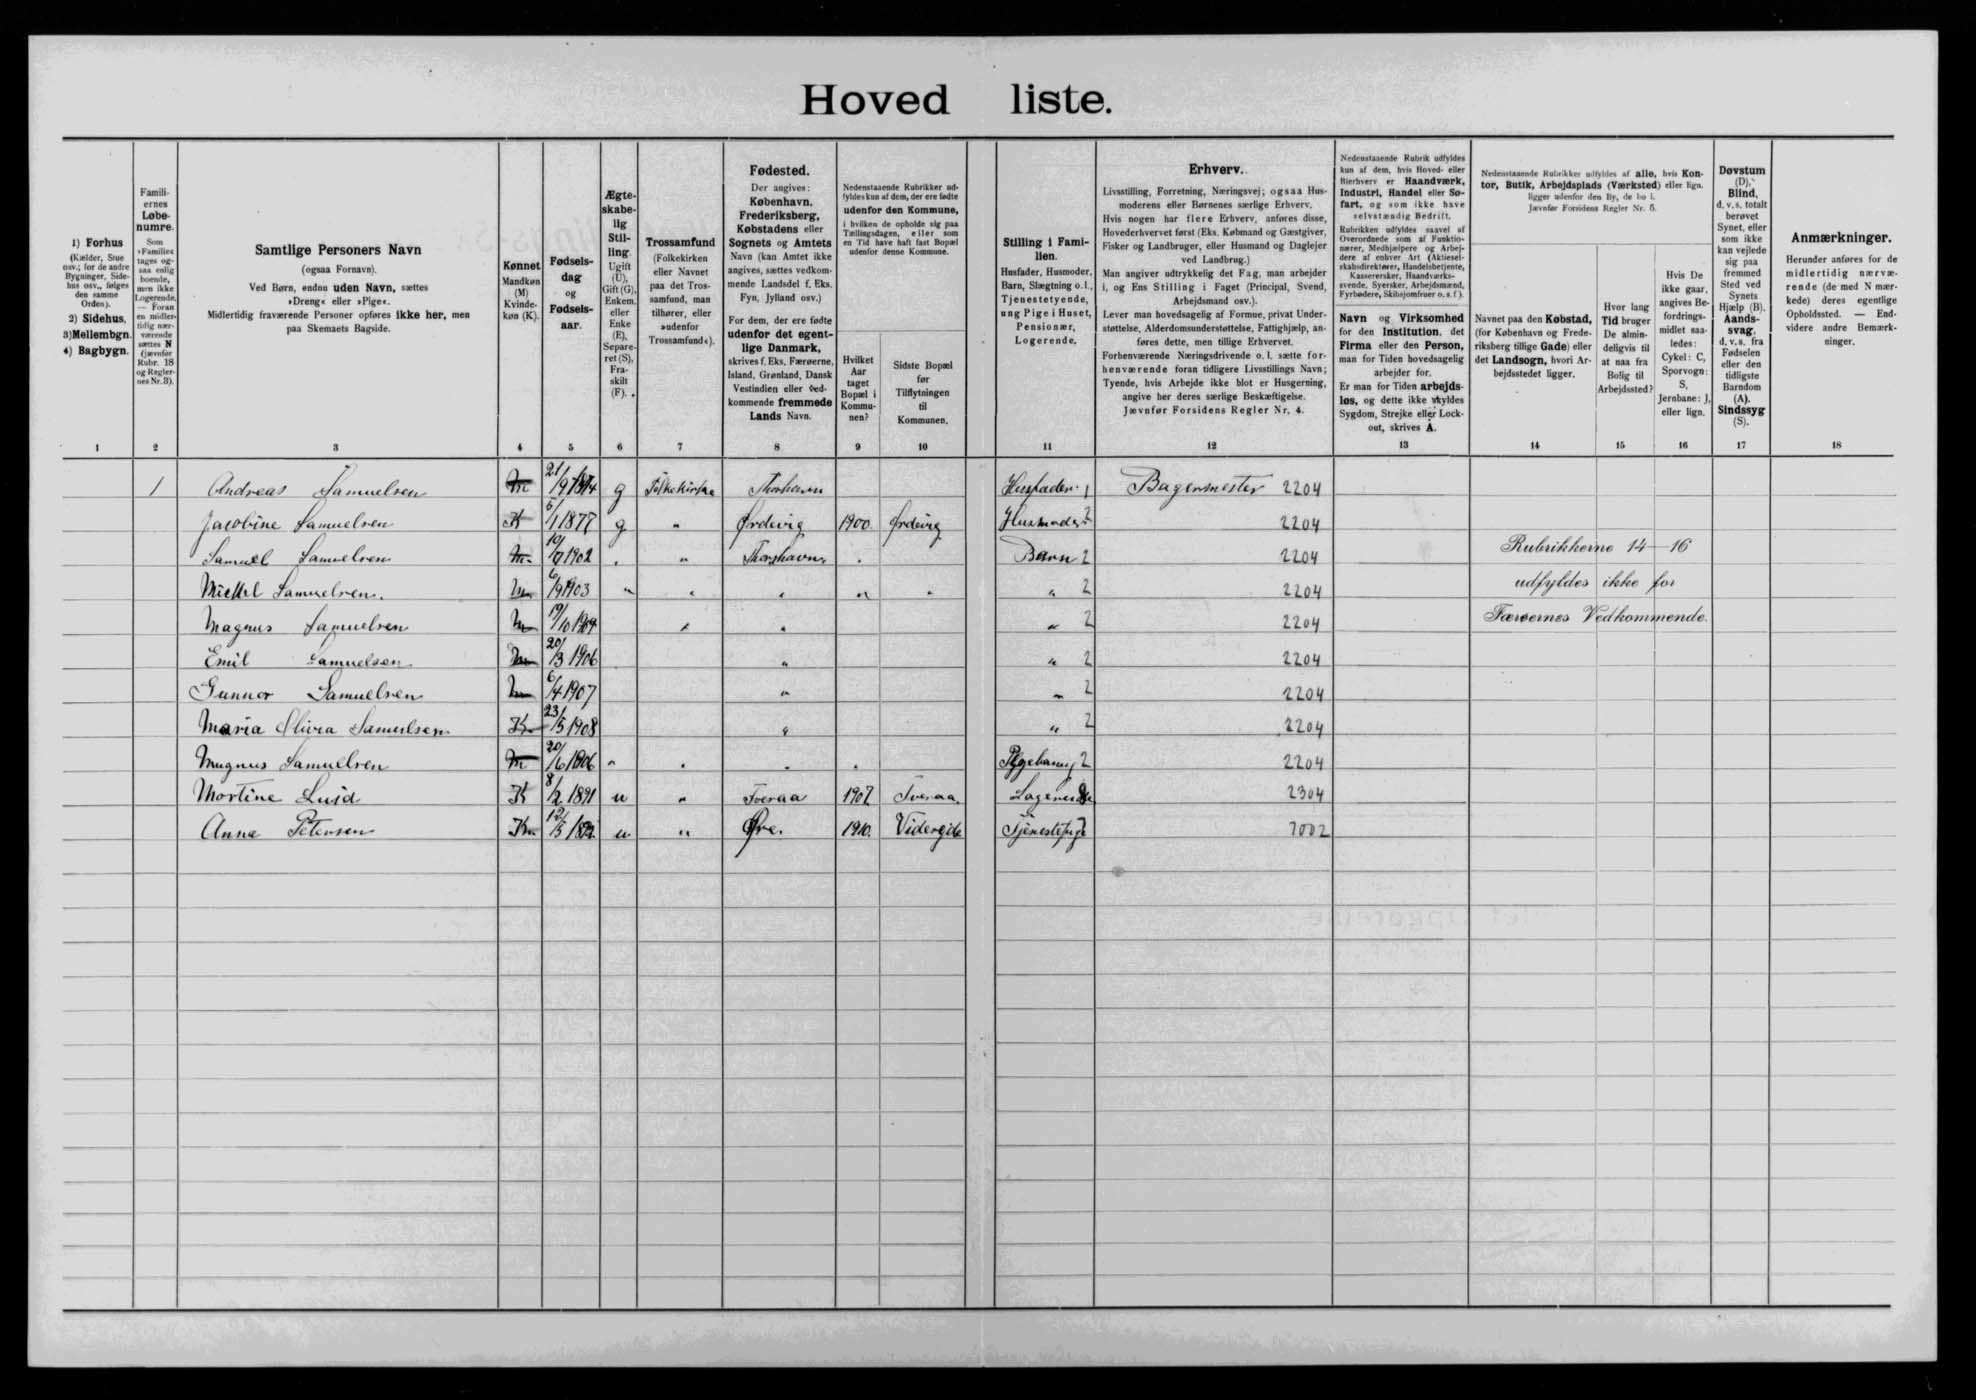 Hoved liste.
1) Forhus
(Kælder, Stue
osv.; for de andre
Bygninger, Side-
hus osv., følges
den samme
Orden).
2) Sidehus.
3) Mellembgn.
4) Bagbygn.
1
Famili-
ernes
Løbe-
numre.
Som
»Familie«
tages og-
saa enlig
boende,
men ikke
Logerende.
— Foran
en midler-
tidig nær-
værende
sættes N
(jævnfør
Rubr. 18
og Regler-
nes Nr. 3).
2
Samtlige Personers Navn
(ogsaa Fornavn).
Ved Børn, endnu uden Navn, sættes
»Dreng« eller »Pige«.
Midlertidig fraværende Personer opføres ikke her, men
paa Skemaets Bagside.
3
Kønnet
Mandkøn
(M)
Kvinde-
køn (K).
4
Fødsels-
dag
og
Fødsels-
aar.
5
Ægte-
skabe-
lig
Stil-
ling.
Ugift
(U),
Gift (G),
Enkem.
eller
Enke
(E),
Separe-
ret (S),
Fra-
skilt
(F).
6
Trossamfund
(Folkekirken
eller Navnet
paa det Tros-
samfund, man
tilhører, eller
»udenfor
Trossamfund«).
7
Fødested.
Der angives:
København,
Frederiksberg,
Købstadens eller
Sognets og Amtets
Navn (kan Amtet ikke
angives, sættes vedkom-
mende Landsdel f. Eks.
Fyn, Jylland osv.)
For dem, der ere fødte
udenfor det egent-
lige Danmark,
skrives f. Eks. Færøerne,
Island, Grønland, Dansk
Vestindien eller ved-
kommende fremmede
Lands Navn.
8
Nedenstaaende Rubrikker ud-
fyldes kun af dem, der ere fødte
udenfor den Kommune,
i hvilken de opholde sig paa
Tællingsdagen, eller som
en Tid have haft fast Bopæl
udenfor denne Kommune.
Hvilket
Aar
taget
Bopæl i
Kommu-
nen?
9
Sidste Bopæl
før
Tilflytningen
til
Kommunen.
10
Stilling i Fami-
lien.
Husfader, Husmoder,
Barn, Slægtning o.l.,
Tjenestetyende,
ung Pige i Huset,
Pensionær,
Logerende.
11
Erhverv.
Livsstilling, Forretning, Næringsvej; ogsaa Hus-
moderens eller Børnenes særlige Erhverv.
Hvis nogen har flere Erhverv, anføres disse,
Hovederhvervet først (Eks. Købmand og Gæstgiver,
Fisker og Landbruger, eller Husmand og Daglejer
ved Landbrug.)
Man angiver udtrykkelig det Fag, man arbejder
i, og Ens Stilling i Faget (Principal, Svend,
Arbejdsmand osv.).
Lever man hovedsagelig af Formue, privat Under-
støttelse, Alderdomsunderstøttelse, Fattighjælp, an-
føres dette, men tillige Erhvervet.
Forhenværende Næringsdrivende o. l. sætte for-
henværende foran tidligere Livsstillings Navn;
Tyende, hvis Arbejde ikke blot er Husgerning,
angive her deres særlige Beskæftigelse.
Jævnfør Forsidens Regler Nr. 4.
12
Nedenstaaende Rubrik udfyldes
kun af dem, hvis Hoved- eller
Bierhverv er Haandværk,
Industri, Handel eller Sø-
fart, og som ikke have
selvstændig Bedrift.
Rubrikken udfyldes saavel af
Overordnede som af Funktio-
nærer, Medhjælpere og Arbej-
dere af enhver Art (Aktiesel-
skabsdirektører, Handelsbetjente,
Kasserersker, Haandværks-
svende, Syersker, Arbejdsmænd,
Fyrbødere, Skibsjomfruer o. s. f.).
Navn og Virksomhed
for den Institution, det
Firma eller den Person,
man for Tiden hovedsagelig
arbejder for.
Er man for Tiden arbejds-
løs, og dette ikke skyldes
Sygdom, Strejke eller Lock-
out, skrives A.
13
Nedenstaaende Rubrikker udfyldes af alle, hvis Kon-
tor, Butik, Arbejdsplads (Værksted) eller lign.
ligger udenfor den By, de bo i.
Jævnfør Forsidens Regler Nr. 6.
Navnet paa den Købstad,
(for København og Frede-
riksberg tillige Gade) eller
det Landsogn, hvori Ar-
bejdsstedet ligger.
14
Hvor lang
Tid bruger
De almin-
deligvis til
at naa fra
Bolig til
Arbejdssted?
15
Hvis De
ikke gaar,
angives Be-
fordrings-
midlet saa-
ledes:
Cykel: C,
Sporvogn:
S,
Jernbane: J,
eller lign.
16
Døvstum
(D),
Blind,
d. v. s. totalt
berøvet
Synet, eller
som ikke
kan vejlede
sig paa
fremmed
Sted ved
Synets
Hjælp (B).
Aands-
svag,
d. v. s. fra
Fødselen
eller den
tidligste
Barndom
(A).
Sindssyg
(S).
17
Anmærkninger.
Herunder anføres for de
midlertidig nærvæ-
rende (de med N mær-
kede) deres egentlige
Opholdssted. — End-
videre andre Bemærk-
ninger.
18
1 Andreas Samuelsen M 21/9 1874 g Folkekirke Thorshavn Husfader 1 Bagermester 2204
Jacobine Samuelsen K 5/1 1877 g " Ørdevig 1900. Ørdevig Husmoder 2 2204
Samuel Samuelsen M 10/7 1902 " Thorshavn Barn 2 2204
Mickel Samuelsen. M 6/9 1903 " " " " " " 2 2204
Magnus Samuelsen M 19/10 1904 " " " 2 2204
Emil Samuelsen M 20/3 1906 " " 2 2204
Gunnar Samuelsen M 6/4 1907 " " 2 2204
Maria Olivia Samuelsen K 23/5 1908 " " 2 2204
Magnus Samuelsen M 20/6 1906 " " " " 2 2204
Mortine Lusd K 8/2 1891 u " Tveraa 1907 Tveraa Logerende 2304
Anna Petersen K 12/5 u " 1910. Tjenestepige 7002
Rubrikkerne 14-16
udfyldes ikke for
Færøernes Vedkommende.